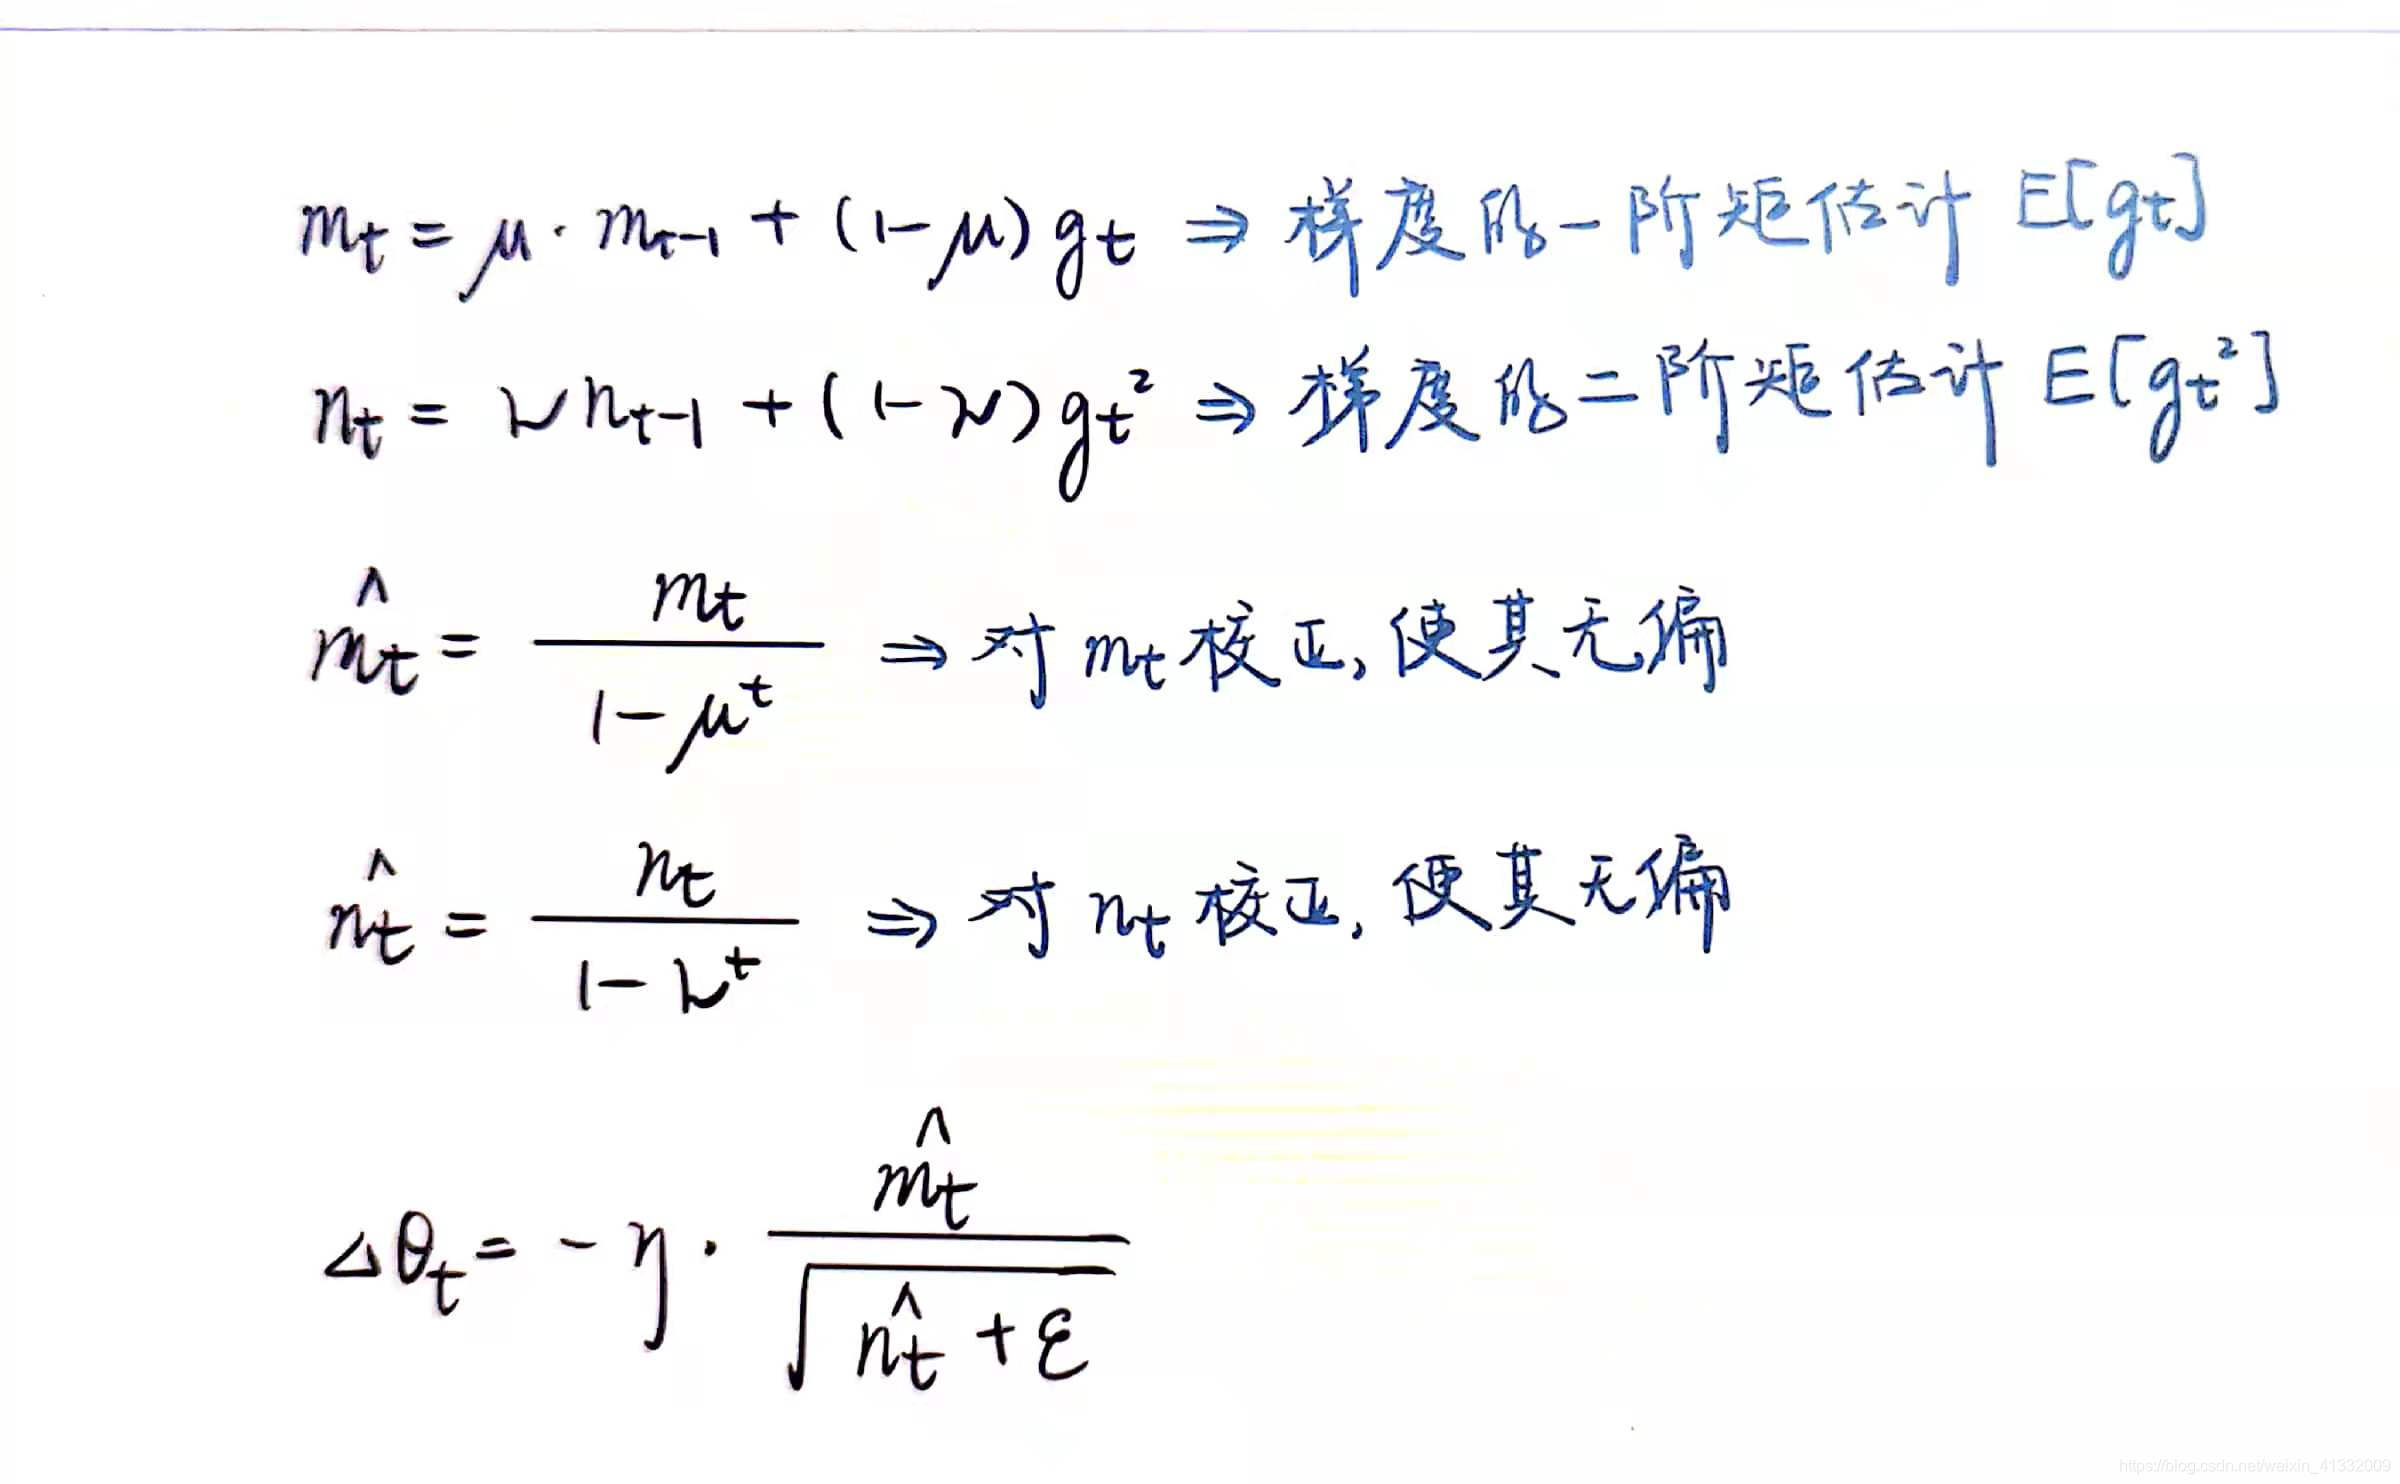 m_t = μ · m_{t-1} + (1-μ) g_t ⇒ 梯度的一阶矩估计 E[g_t]
n_t = ν n_{t-1} + (1-ν) g_t² ⇒ 梯度的二阶矩估计 E[g_t²]
m̂_t = m_t / (1-μ^t) ⇒ 对 m_t 校正, 使其无偏
n̂_t = n_t / (1-ν^t) ⇒ 对 n_t 校正, 使其无偏
Δθ_t = -η · m̂_t / √(n̂_t + ε)
https://blog.csdn.net/weixin_41332009